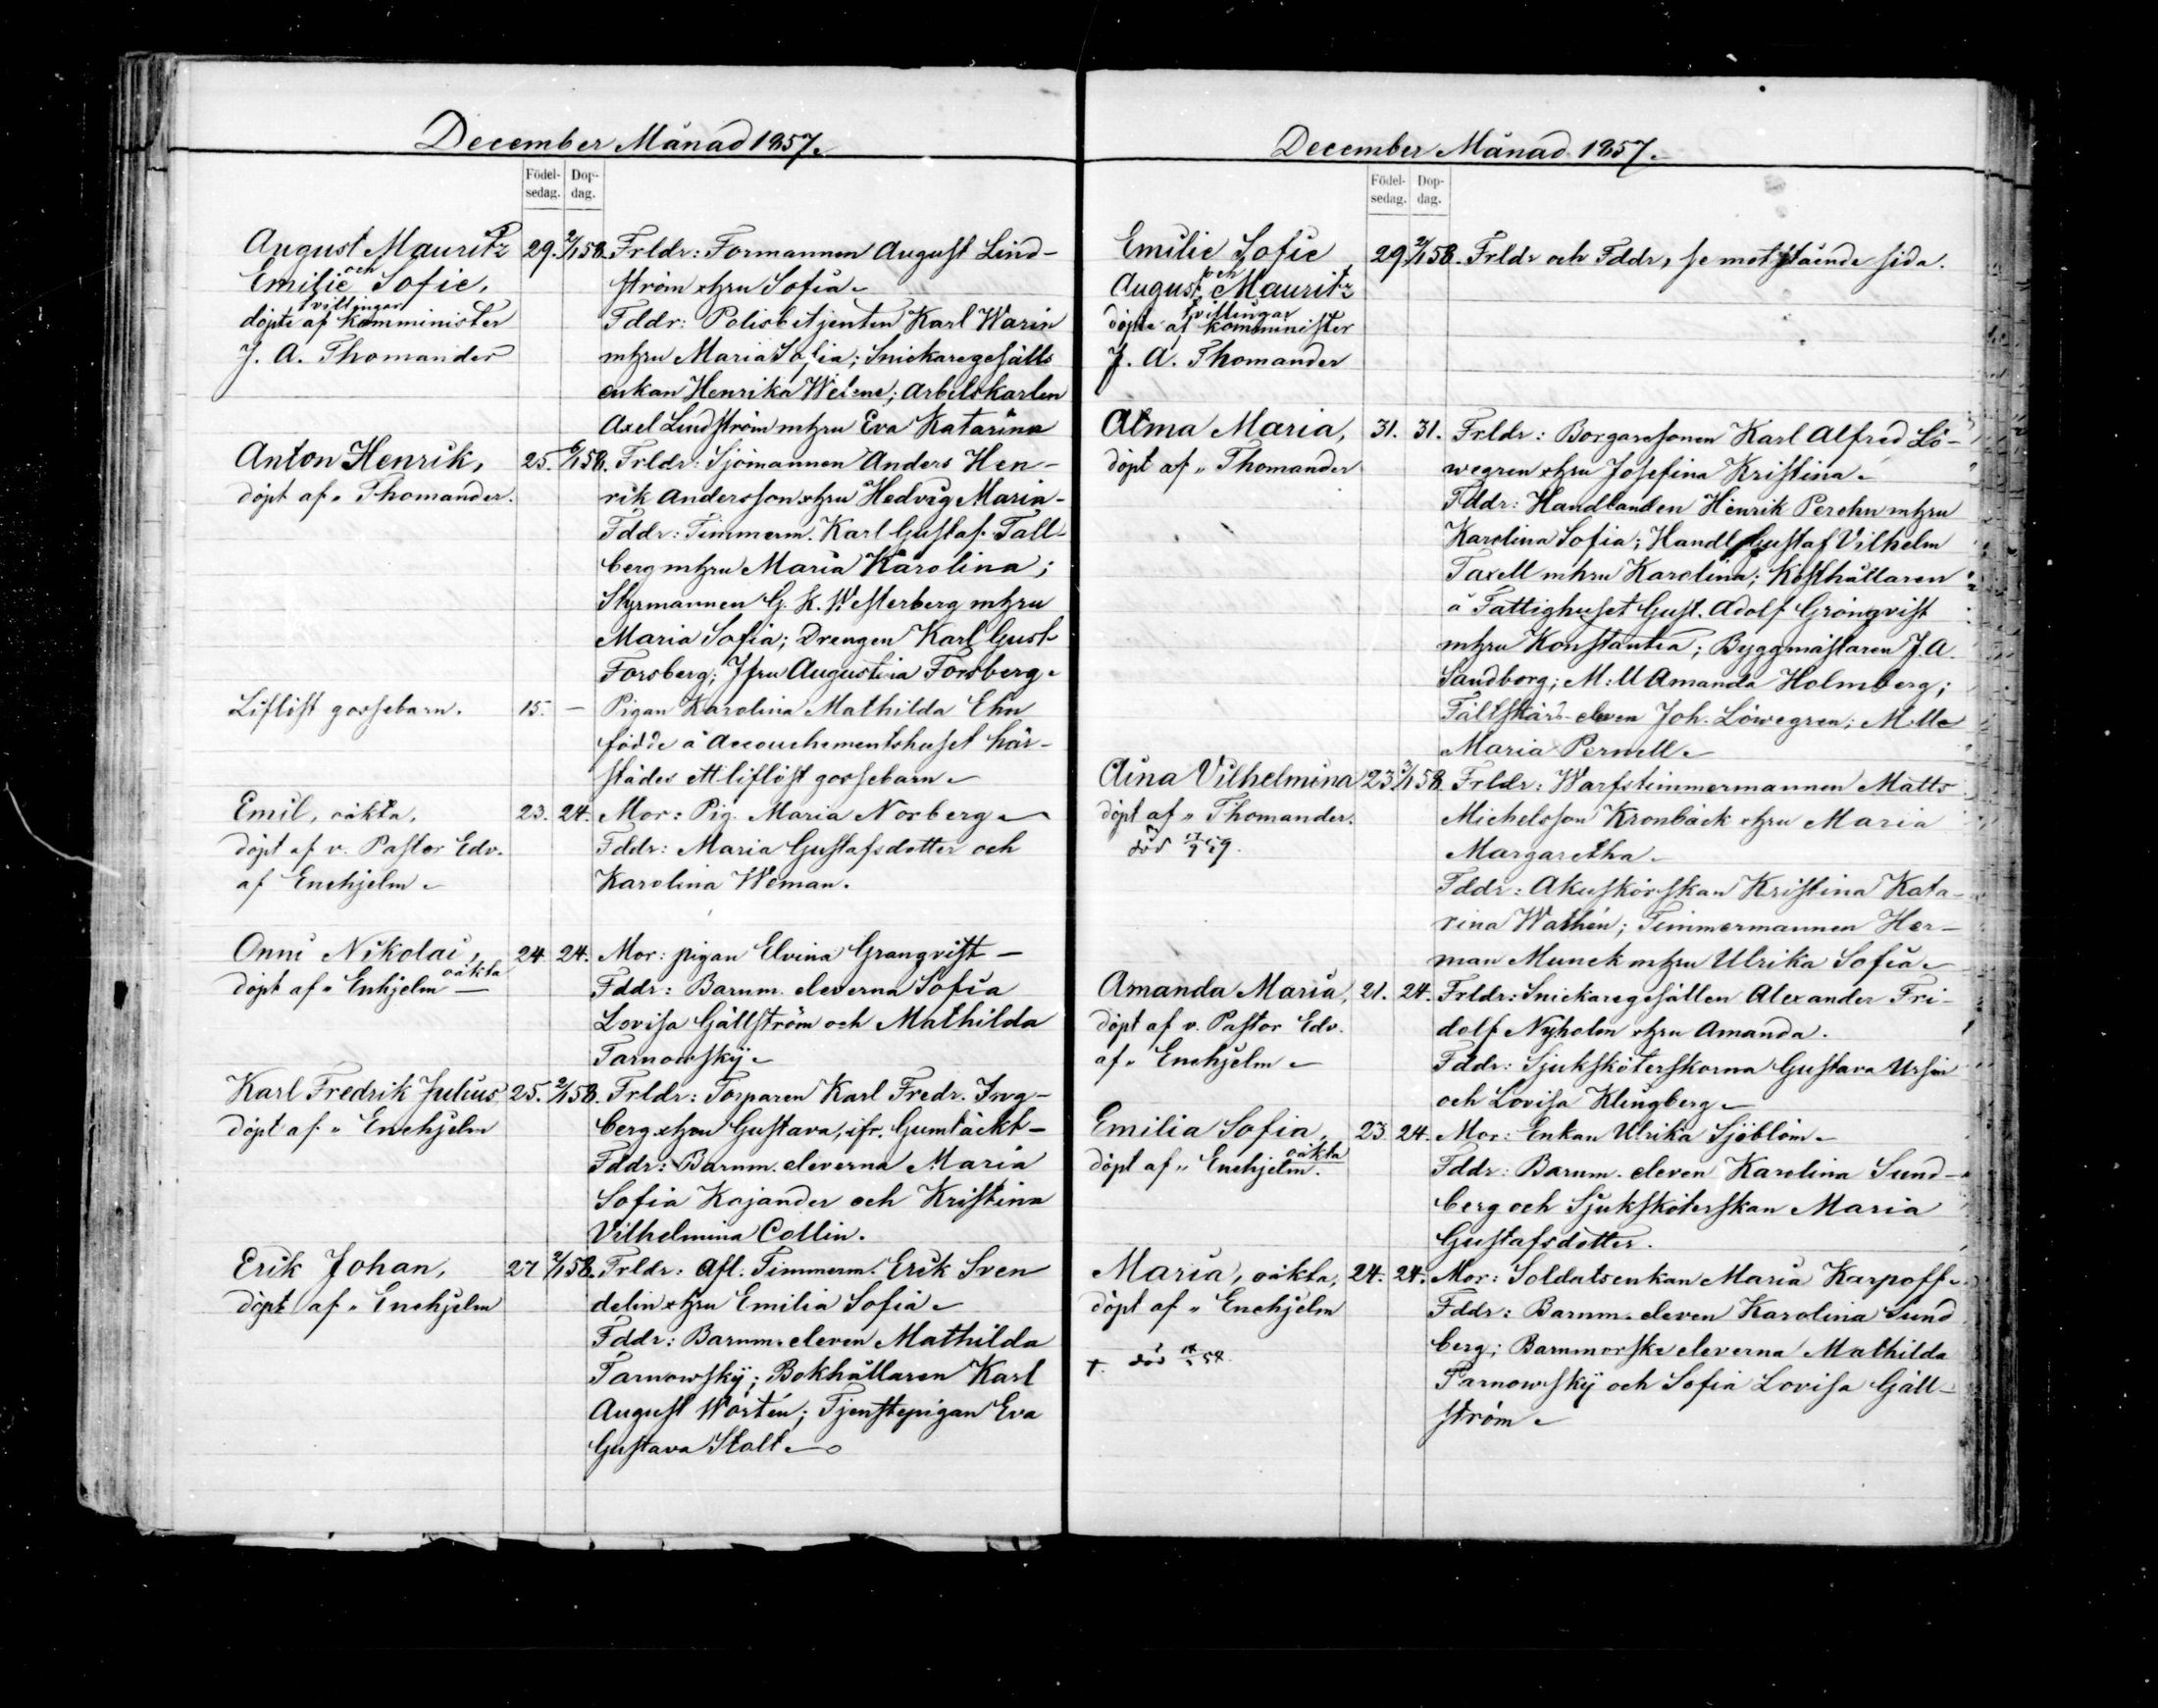 December Månad 1857.
Födel-
sedag.
Dop-
dag.
August Mauritz
och
Emilie Sofie,
tvillingar
döpte af Komminister
J. A. Thomander
29. 2/1 58. Frldr: Formannen August Lind-
ström o hru Sofia.
Fddr: Polisbetjenten Karl Warin
m hru Maria Sofia; Snickaregesälls
enkan Henrika; Arbetskarlen
Axel Lindström m hru Eva Katarina
Anton Henrik,
döpt af " Thomander.
25. 6/1 58. Frldr: Sjömannen Anders Hen-
rik Andersson o hru Hedvig Maria.
Fddr: Timmerm. Karl Gustaf Tall-
berg m hru Maria Karolina;
Styrmannen G. K. Westerberg m hru
Maria Sofia; Drengen Karl Gust.
Forsberg; Jfru Augustina Forsberg.
Liflöst gossebarn.
15. — Pigan Karolina Mathilda Ehn
födde å Accouchementshuset här-
städes ett liflöst gossebarn.
Emil, oäkta,
döpt af v. Pastor Edv.
af Enehjelm.
23. 24. Mor: Pig. Maria Norberg.
Fddr: Maria Gustafsdotter och
Karolina Weman.
Onni Nikolai,
oäkta
döpt af " Enehjelm —
24. 24. Mor: pigan Elvina Granqvist —
Fddr: Barnm. eleverna Sofia
Lovisa Gällström och Mathilda
Tarnowsky.
Karl Fredrik Julius
döpt af " Enehjelm
25. 2/1 58. Frldr: Torparen Karl Fredr. Ing-
berg o hru Gustava, ifr. Gumtäckt —
Fddr: Barnm. eleverna Maria
Sofia Kajander och Kristina
Vilhelmina Collin.
Erik Johan,
döpt af " Enehjelm
27. 2/1 58. Frldr: Afl. Timmerm. Erik Sven
delin o hru Emilia Sofia.
Fddr: Barnm. eleven Mathilda
Tarnowsky; Bokhållaren Karl
August Wörtén; Tjenstepigan Eva
Gustava Stolt.
December Månad 1857.
Födel-
sedag.
Dop-
dag.
Emilie Sofie
och
August Mauritz
tvillingar
döpte af komminister
J. A. Thomander
29. 2/1 58. Frldr och Fddr, se motstående sida.
Alma Maria,
döpt af " Thomander
31. 31. Frldr: Borgaresonen Karl Alfred Lö-
wegren o hru Josefina Kristina.
Fddr: Handlanden Henrik Perehn m hru
Karolina Sofia; Handl Gustaf Vilhelm
Taxell m hru Karolina; Kosthållaren
å Fattighuset Gust. Adolf Grönqvist
m hru Konstantia; Byggmästaren J. A.
Sandborg; M:ll Amanda Holmberg;
Fältskärs-eleven Joh. Löwegren; M:lle
Maria Pernell.
Aina Vilhelmina
döpt af " Thomander.
död
23. 3/1 58. Frldr: Warfstimmermannen Matts
Michelsson Kronbäck o hru Maria
Margaretha.
Fddr: Akuskörskan Kristina Kata-
rina Wathén; Timmermannen Her-
man Munck m hru Ulrika Sofia.
Amanda Maria,
döpt af v. Pastor Edv.
af " Enehjelm.
21. 24. Frldr: Snickaregesällen Alexander Fri-
dolf Nyholm o hru Amanda.
Fddr: Sjuksköterskorna Gustava Ursin
och Lovisa Klingberg.
Emilia Sofia,
oäkta
döpt af " Enehjelm.
23. 24. Mor: Enkan Ulrika Sjöblom.
Fddr: Barnm. eleven Karolina Sund-
berg och Sjuksköterskan Maria
Gustafsdotter.
Maria, oäkta,
döpt af " Enehjelm
†. död
24. 24. Mor: Soldatsenkan Maria Karpoff.
Fddr: Barnm. eleven Karolina Sund
berg; Barnmorske eleverna Mathilda
Tarnowsky och Sofia Lovisa Gäll-
ström.